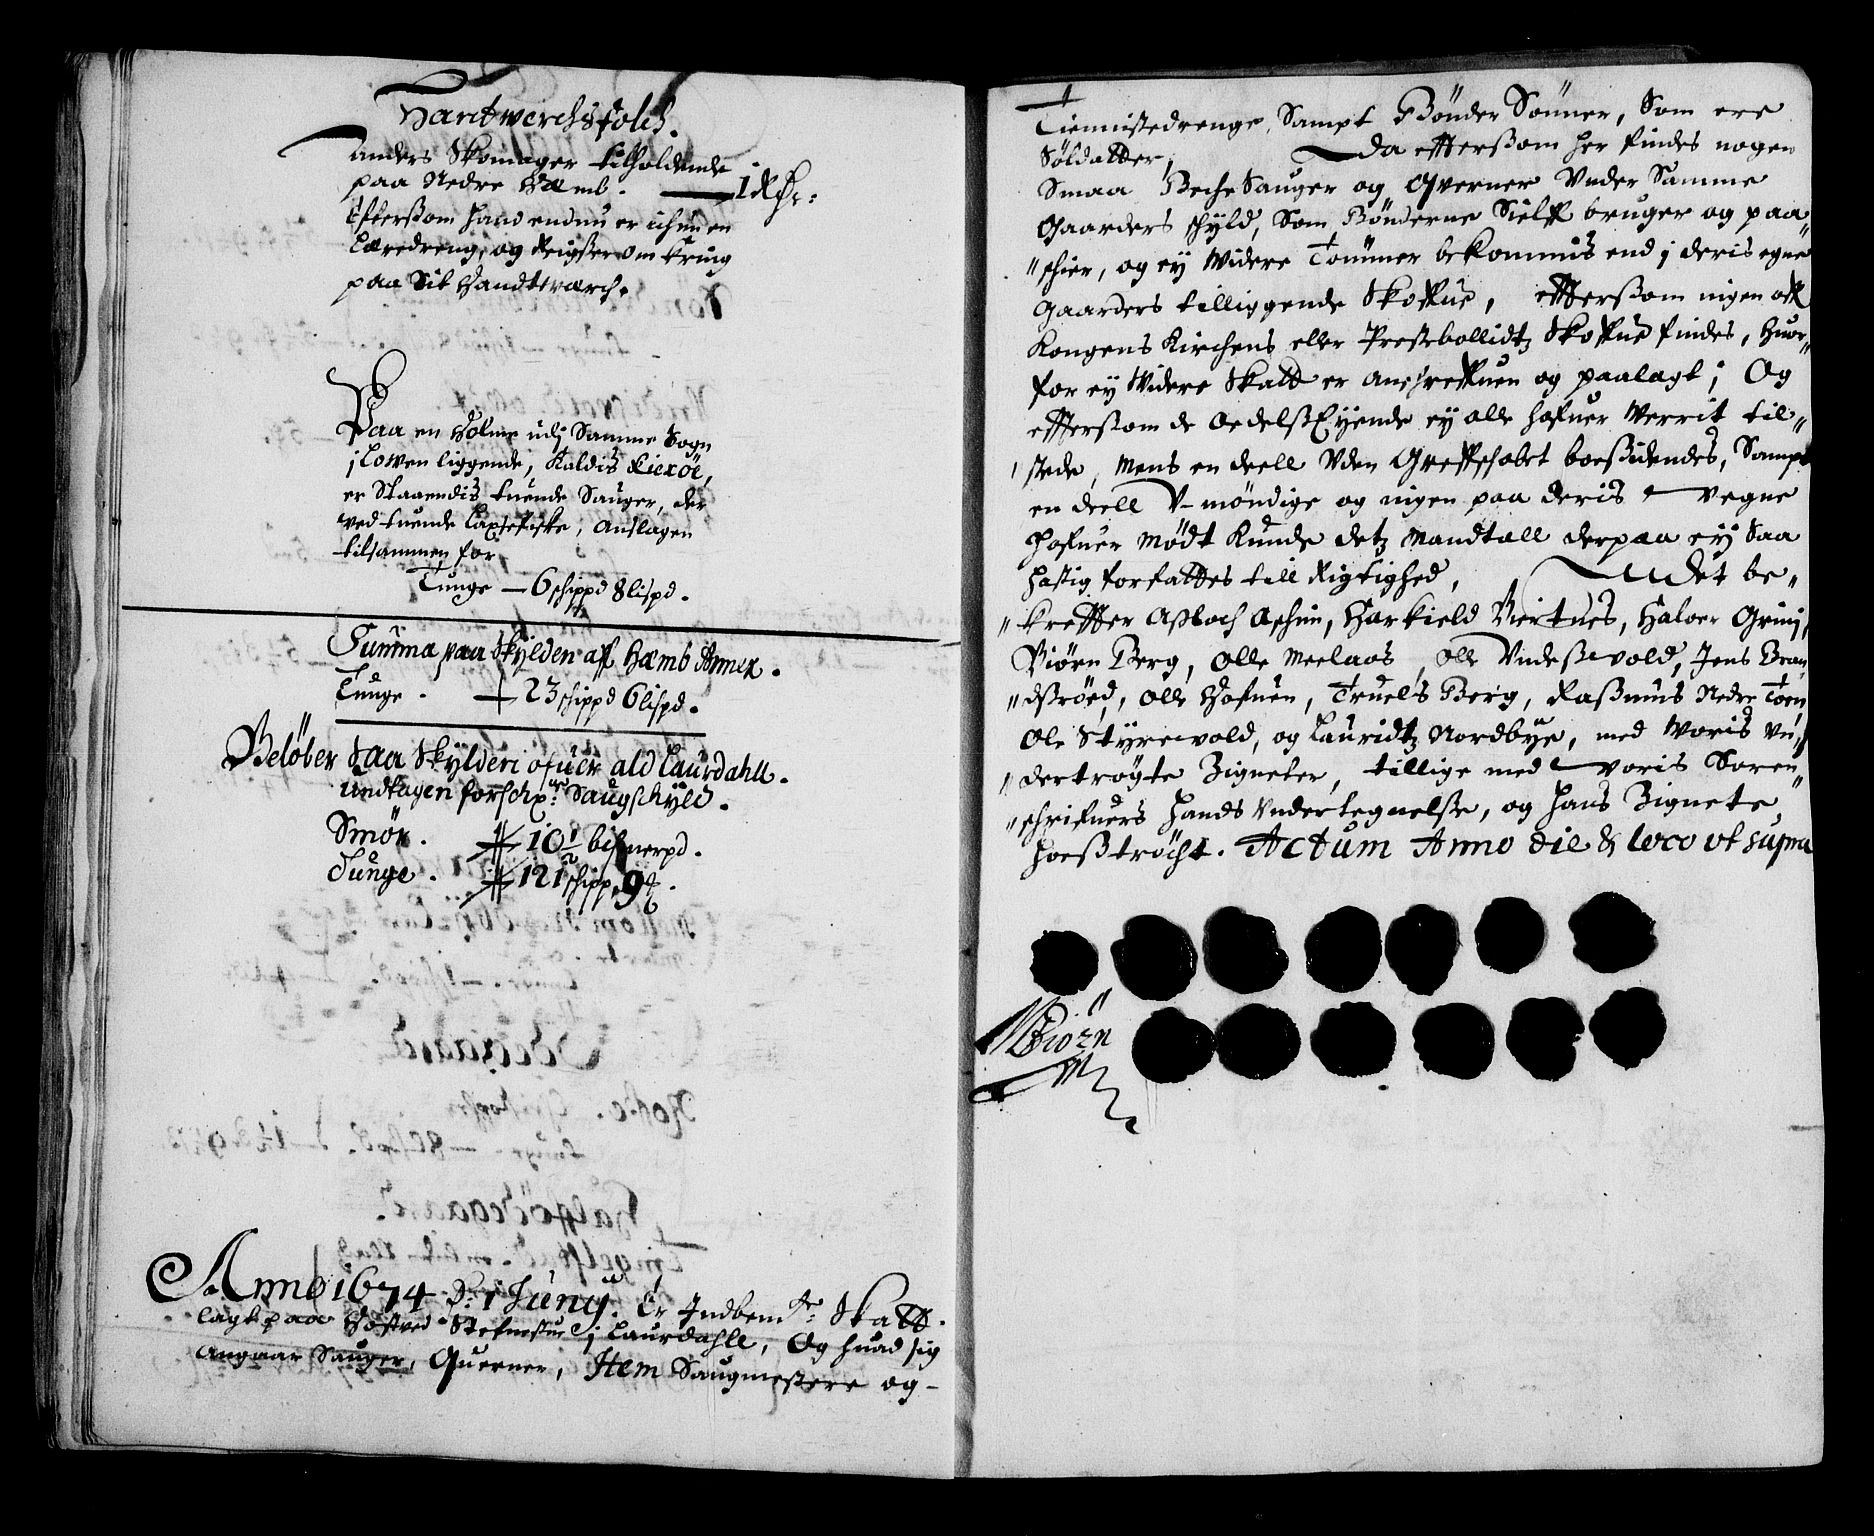 Hantwerchsfolch.
Anders Skomager tilholdende
paa Nedre Hæmb. — 1 Rdr:
Efterßom hand endnu er ichun en
Læredreng, og Reigßer om kring
paa Sit Handtwærch.
Paa en Holme udj Samme Sogn
j Lowen liggende, Kaldis Kierøe,
er Staaendis tuende Sauger, der
ved tuende Laxsefiske, Anslagen
tilsammen for
Tunge — 6 schippd 8 lispd.
Summa paa Skylden aff Hæmb Annex.
Tunge. — 23 schippd 6 lispd.
Beløber Saa Skylden ofuer ald Laurdahll.
undtagen forschr: Saugschyld.
Smør. 10 1/2 bißmerpd.
Tunge. 121 schipp 9
Anno 1674 d: 1 Junij. Er Indbem.te Skatt
lagt paa Høstved Stefnestue j Laurdahll, Og huad sig
angaar Sauger, Querner, Item Saugmestere og-
Tiennistedrenge, Sampt Bønder Sønner, Som ere
Soldatter, Da effterßom her findes nogen
Smaa Beche Sauger og Qverner Under Samme
Gaarders schyld, Som Bønderne Sielff bruger og paa
schier, og ey Widere Tømmer bekommis end j deris egne
Gaarders tilliggende Skoffue, effterßom ingen aff
Kongens Kirchens eller Prestebollidtz Skoffue findes, Huor-
for ey Widere Skatt er anschreffuen og paalagt; Og
effterßom de Oedelß Eyende ey alle hafuer Werrit til-
stede, Mens en deell Uden Greffschabet boeßidendes, Sampt
en deell U-møndige og ingen paa deris vegne
hafuer Mødt Kunde detz Mandtall derpaa ey Saa
hastig forfattes till Rigtighed, Det be-
kreffter Aßlach Aschim, Harkield Biertnes, Haluor Grinj,
Biørn Berg, Olle Meelaas, Olle Undeßevold, Jens Bran
dßrøed, Olle Hafuen, Truels Berg, Raßmus Nedre Toen
Ole Styrevold, og Lauridtz Nordbye, med Woris Un-
dertrøgte Zigneter, tillige med voris Soren
schrifuers Hands Undertegnelße, og hans Zignete
hoeßtrøcht. Actum Anno die & loco ut supra
NBiørn